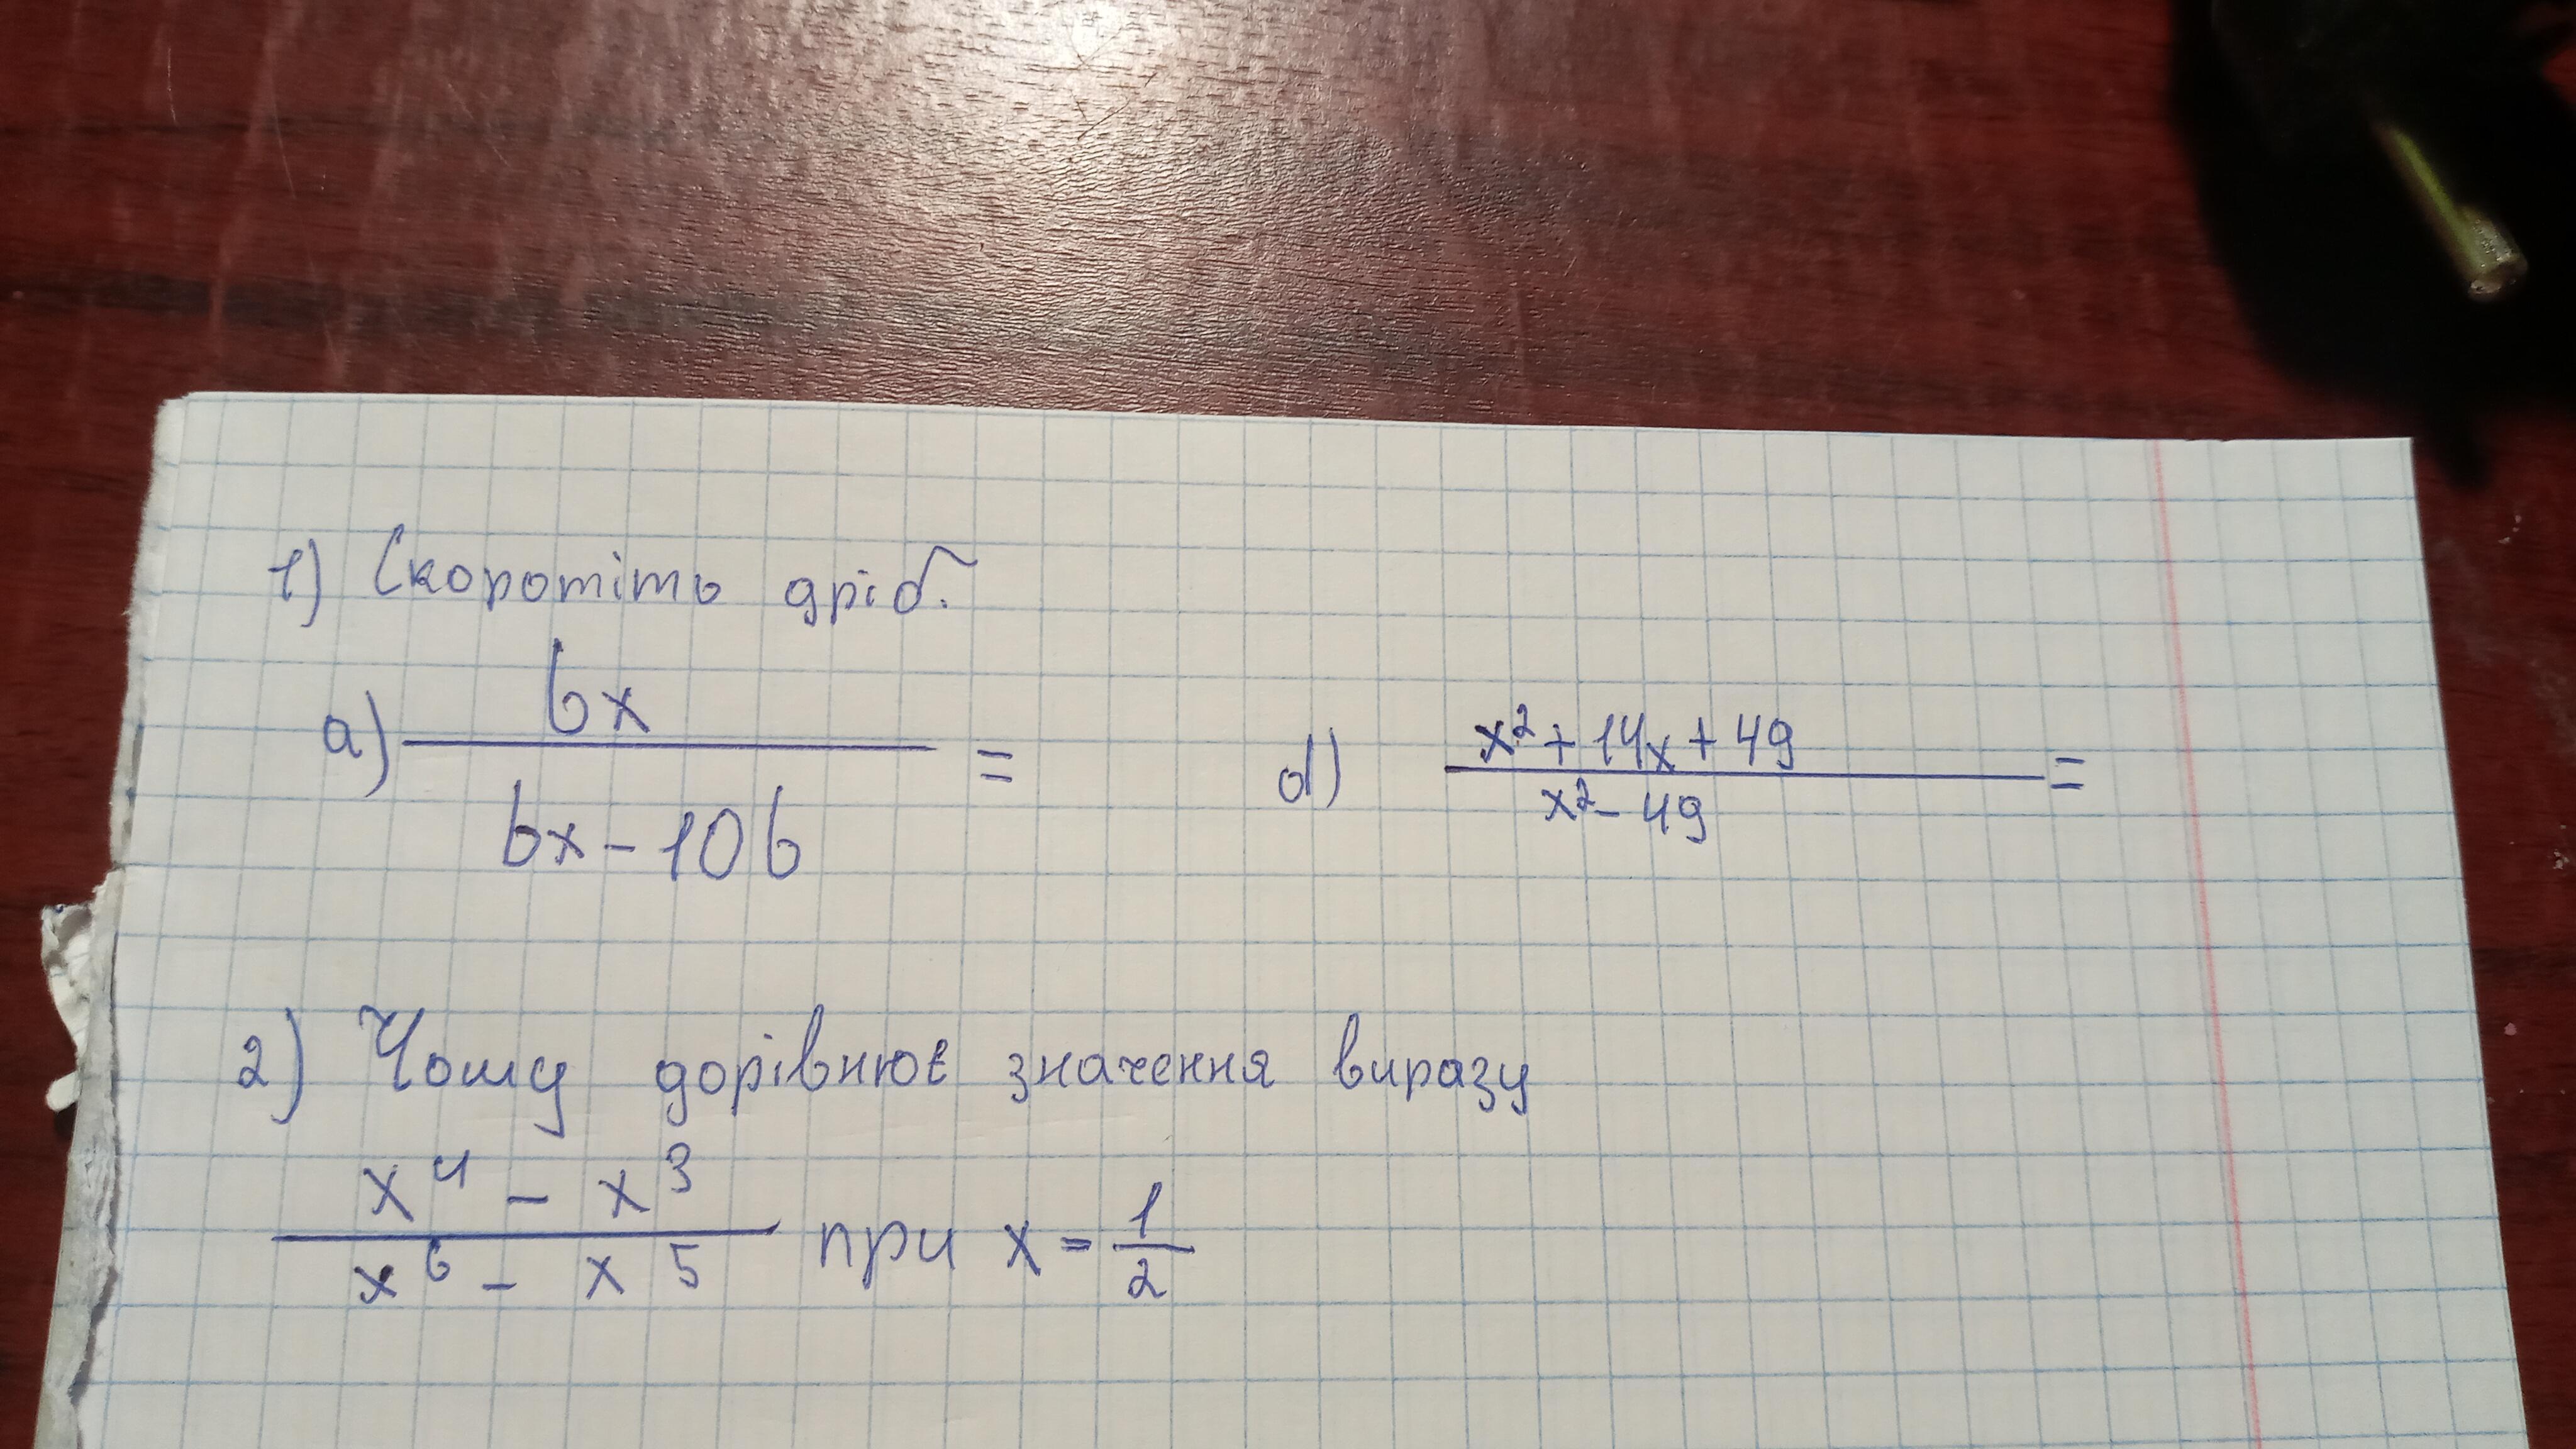 1) Скоротіть дріб.
а) bx / bx - 10b = б) x² + 14x + 49 / x² - 49 =
2) Чому дорівнює значення виразу
x⁴ - x³ / x⁶ - x⁵ при x = 1/2